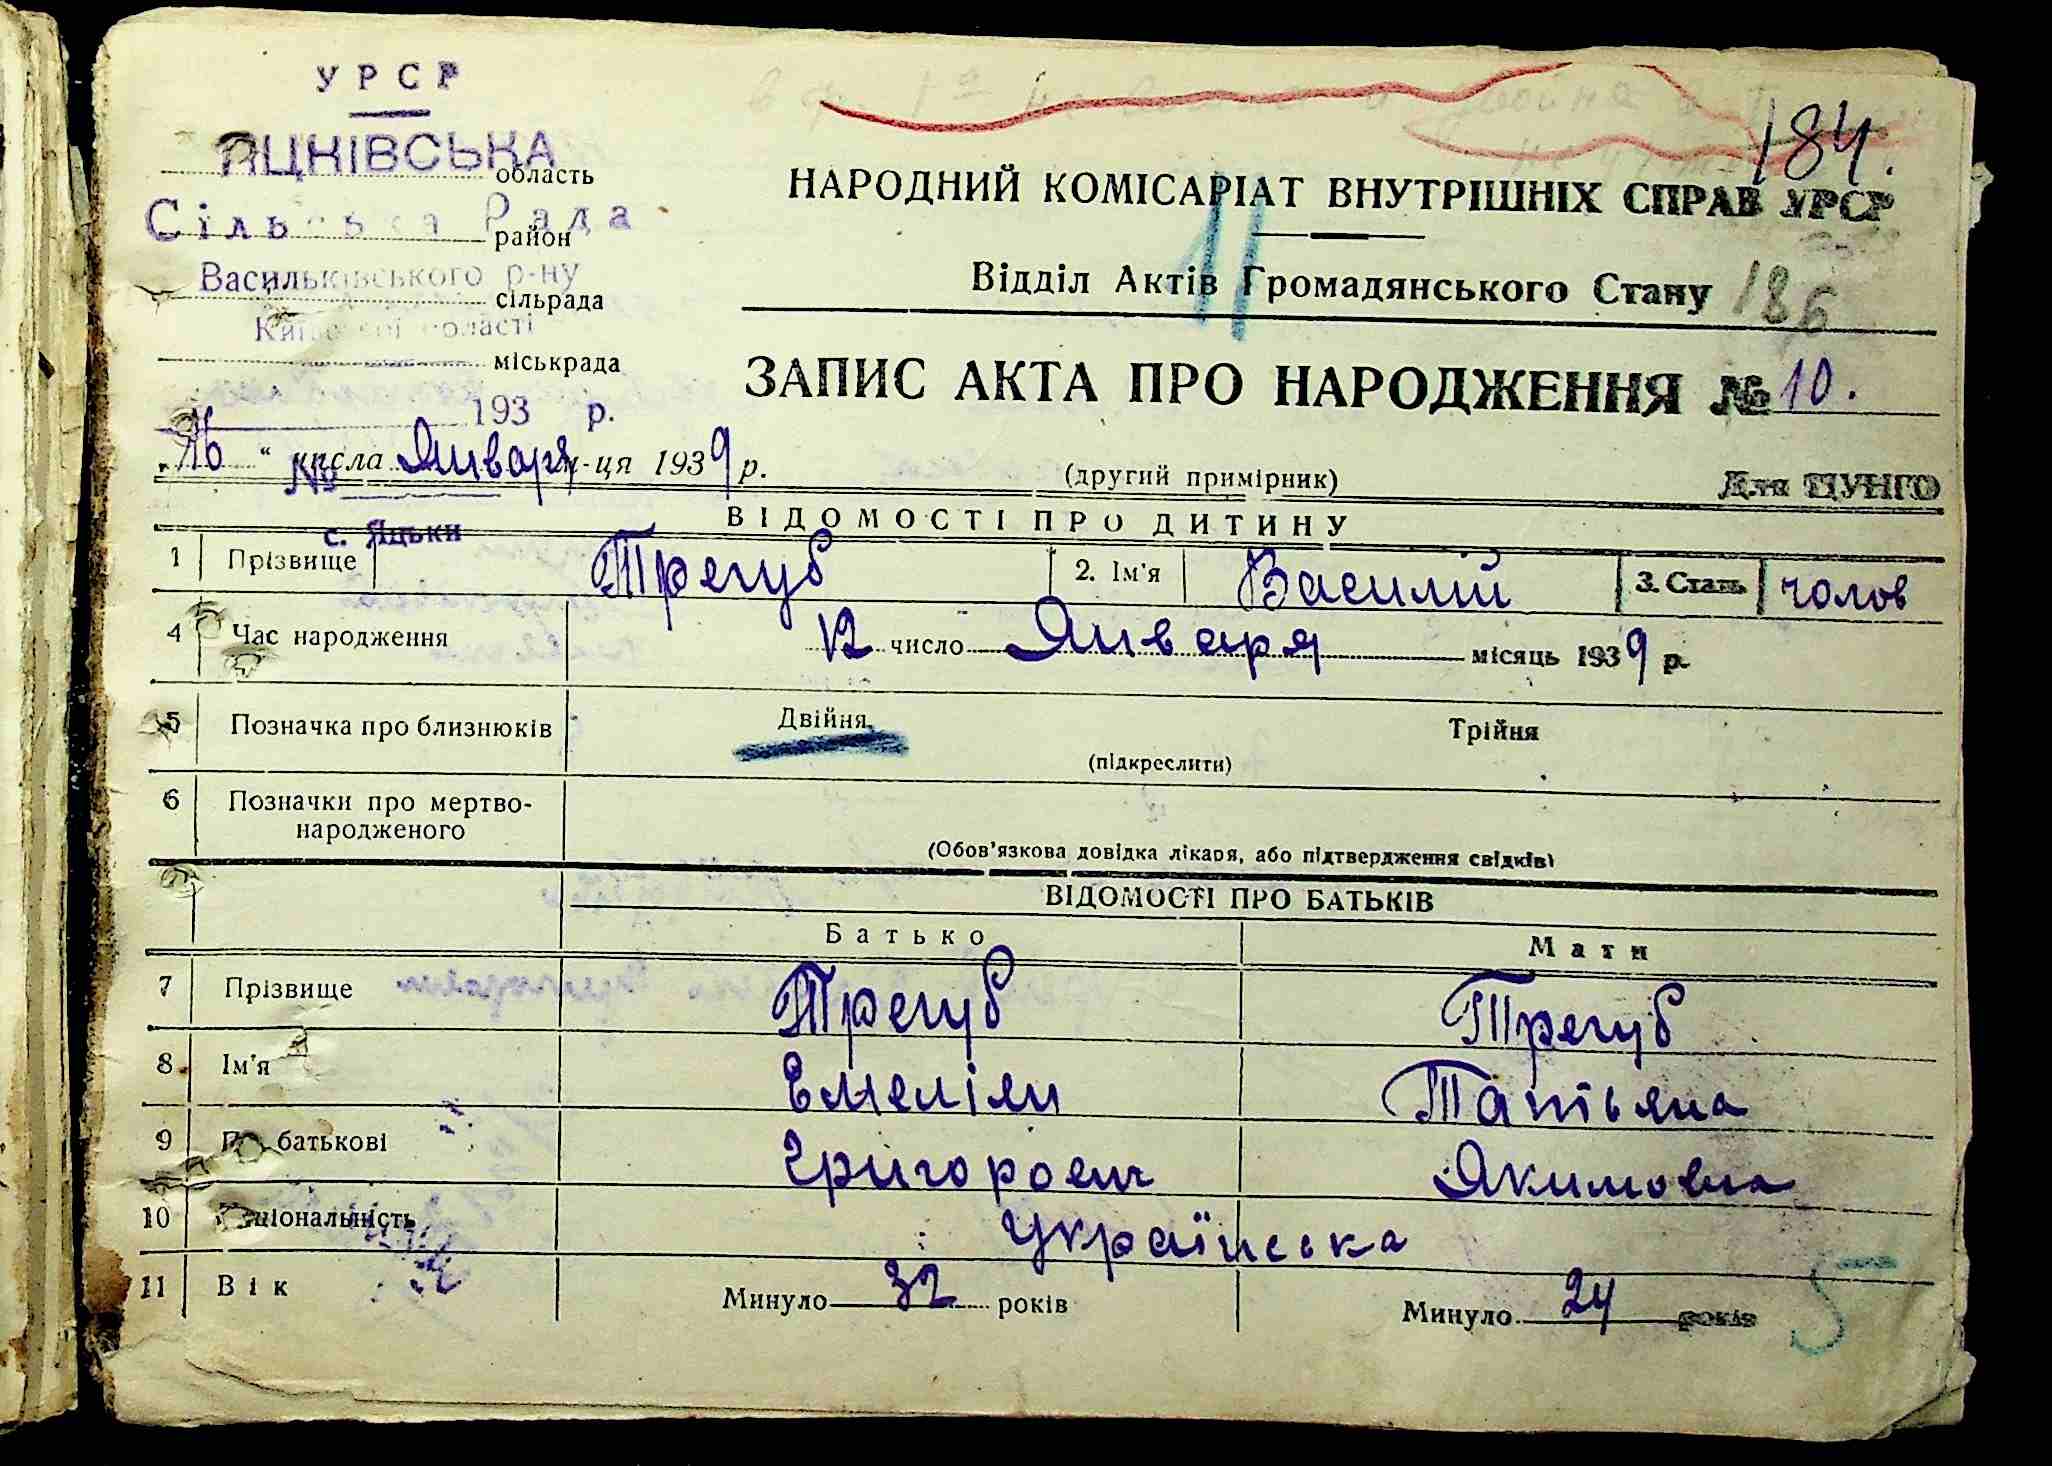 УРСР
184.
ЯЦКІВСЬКА
область
НАРОДНИЙ КОМІСАРІАТ ВНУТРІШНІХ СПРАВ УРСР
Сільська Рада
район
11
Відділ Актів Громадянського Стану 186
Васильківського р-ну
сільрада
Київської області
міськрада
ЗАПИС АКТА ПРО НАРОДЖЕННЯ № 10.
193 р.
„16“ числа Января м-ця 1939 р.
№
(другий примірник)
Для ЦУНГО
с. Яцьки
ВІДОМОСТІ ПРО ДИТИНУ
1 Прізвище Трегуб 2. Ім'я Василій 3. Стать чолов
4 Час народження 12 число Января місяць 1939 р.
5 Позначка про близнюків Двійня Трійня
(підкреслити)
6 Позначки про мертво-
народженого
(Обов'язкова довідка лікаря, або підтвердження свідків)
ВІДОМОСТІ ПРО БАТЬКІВ
Батько Мати
7 Прізвище Трегуб Трегуб
8 Ім'я Емеліян Татьяна
9 По батькові Григорович Якимовна
10 Національність Українська
11 Вік Минуло 32 років Минуло 24 років
5